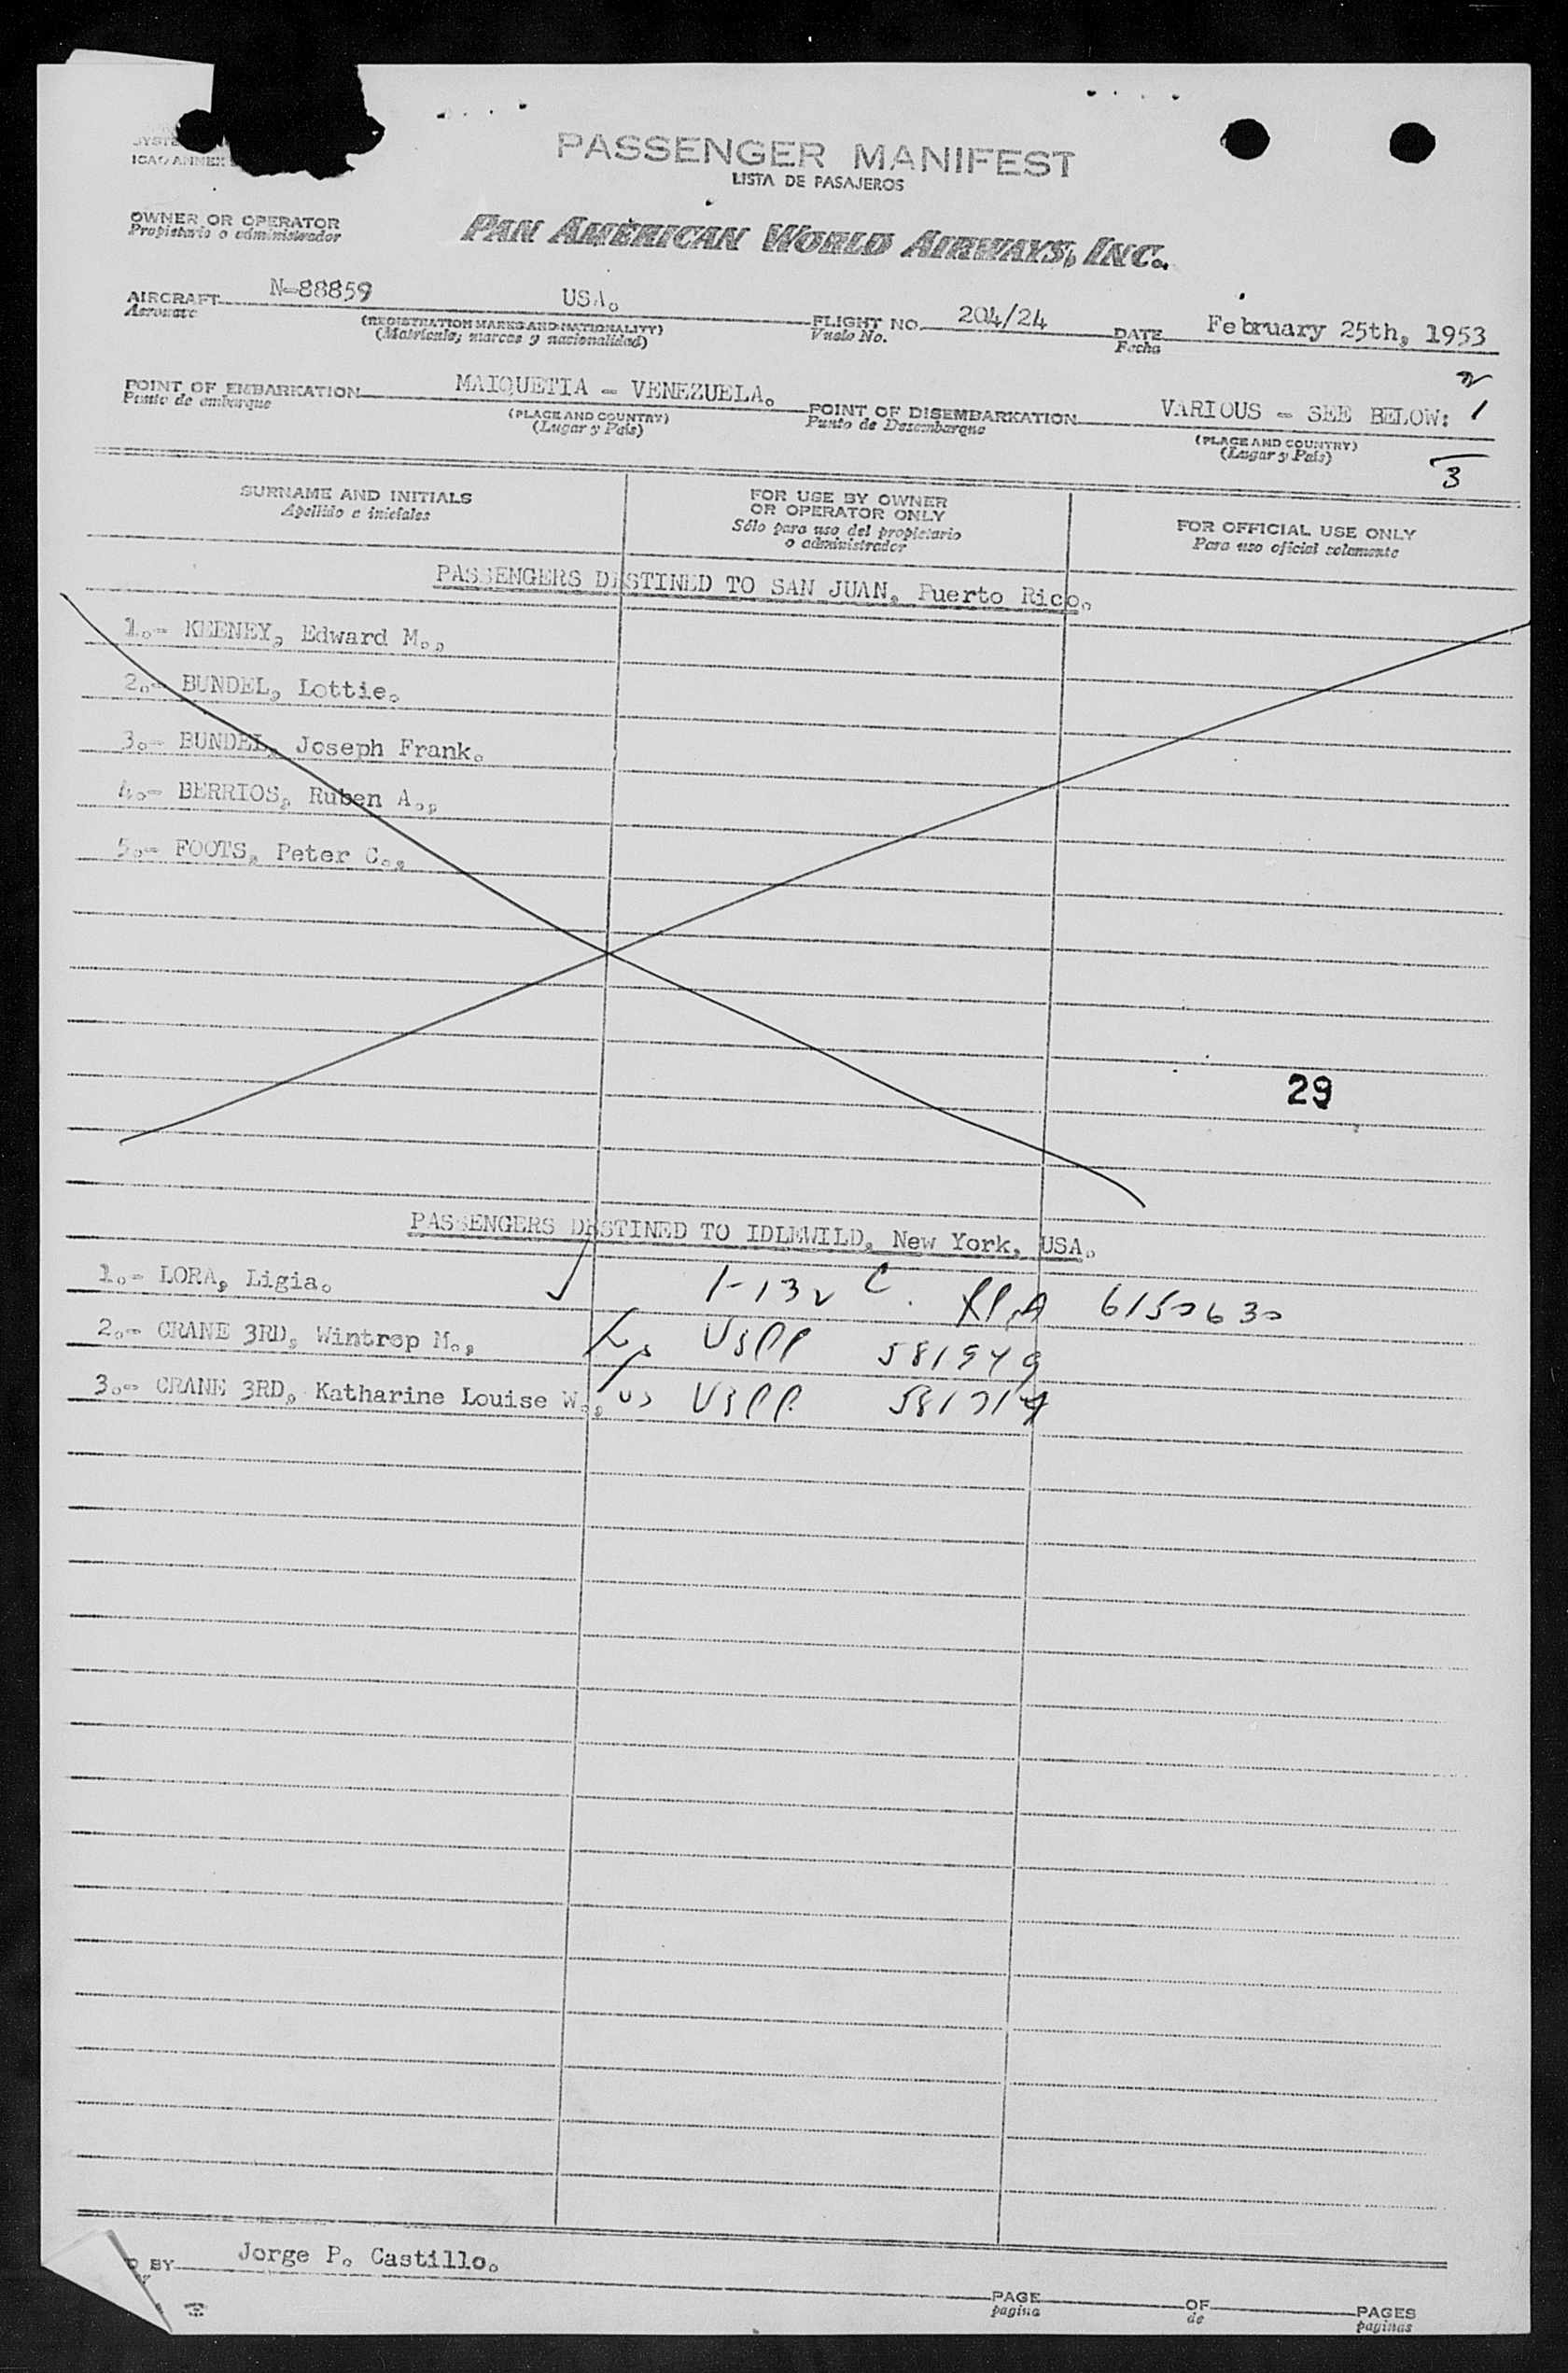 ICAO ANNEX
PASSENGER MANIFEST
LISTA DE PASAJEROS
OWNER OR OPERATOR
Propietario o administrador
PAN AMERICAN WORLD AIRWAYS, INC.
AIRCRAFT N-88859 USA. FLIGHT NO. 204/24 DATE February 25th, 1953
Aeronave (REGISTRATION MARKS AND NATIONALITY) Vuelo No. Fecha
(Matrícula, marcas y nacionalidad)
2
POINT OF EMBARKATION MAIQUETIA - VENEZUELA. POINT OF DISEMBARKATION VARIOUS - SEE BELOW: 1
Punto de embarque (PLACE AND COUNTRY) Punto de Desembarque (PLACE AND COUNTRY)
(Lugar y País) (Lugar y País)
3
SURNAME AND INITIALS FOR USE BY OWNER FOR OFFICIAL USE ONLY
Apellido e iniciales OR OPERATOR ONLY Para uso oficial solamente
Sólo para uso del propietario
o administrador
PASSENGERS DESTINED TO SAN JUAN, Puerto Rico.
1.- KEENEY, Edward M.,
2.- BUNDEL, Lottie.
3.- BUNDEL, Joseph Frank.
4.- BERRIOS, Ruben A.,
5.- FOOTS, Peter C.,
29
PASSENGERS DESTINED TO IDLEWILD, New York, USA.
1.- LORA, Ligia. 1-132 C. 6150630
2.- CRANE 3RD, Wintrop M., USPP
3.- CRANE 3RD, Katharine Louise W., US USPP
BY Jorge P. Castillo.
PAGE OF PAGES
pagina de paginas